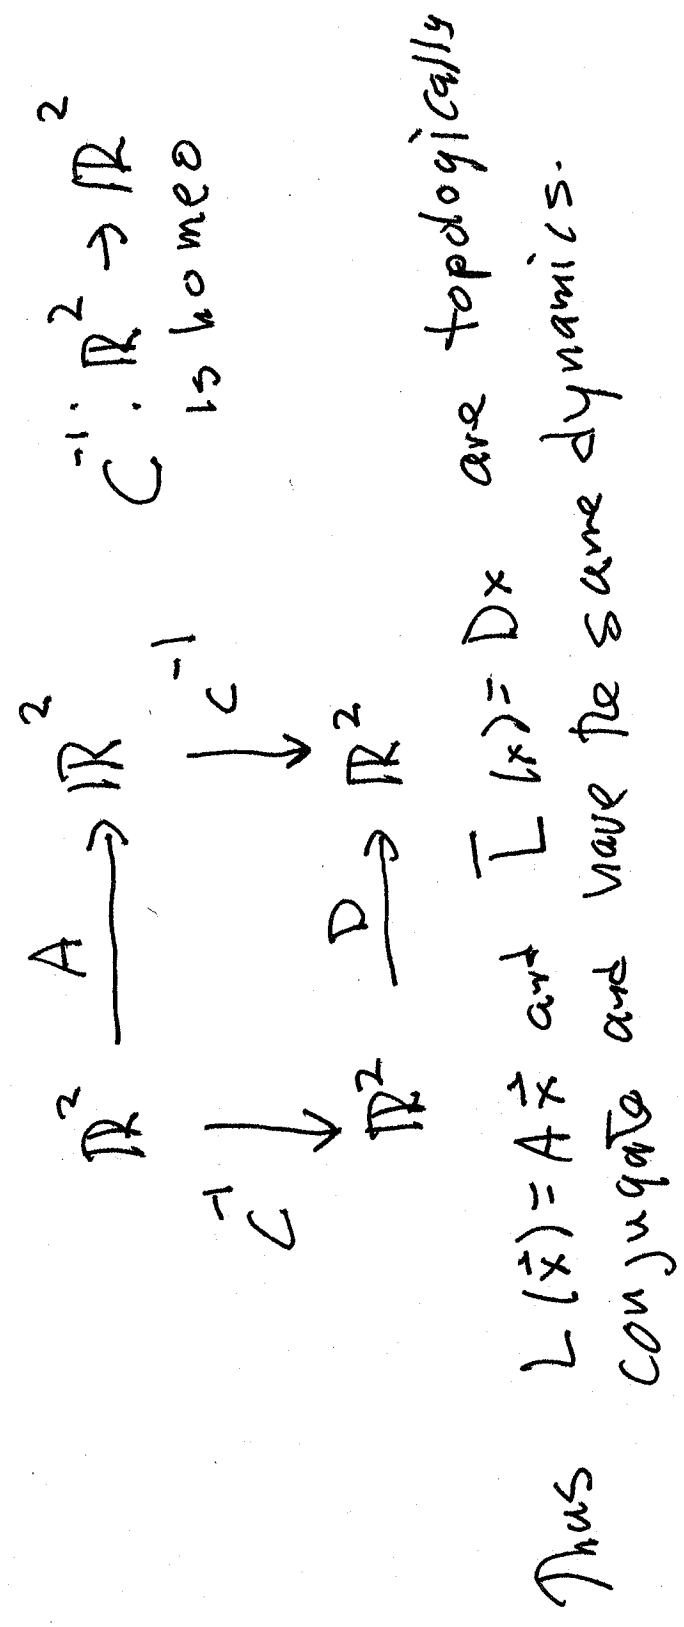 ℝ² A→ ℝ² C⁻¹: ℝ² → ℝ²
C⁻¹ ↓ ↓ C⁻¹ is homeo
ℝ² D→ ℝ²
Thus L(x⃗) = Ax⃗ and L̄(x) = Dx are topologically
conjugate and have the same dynamics.